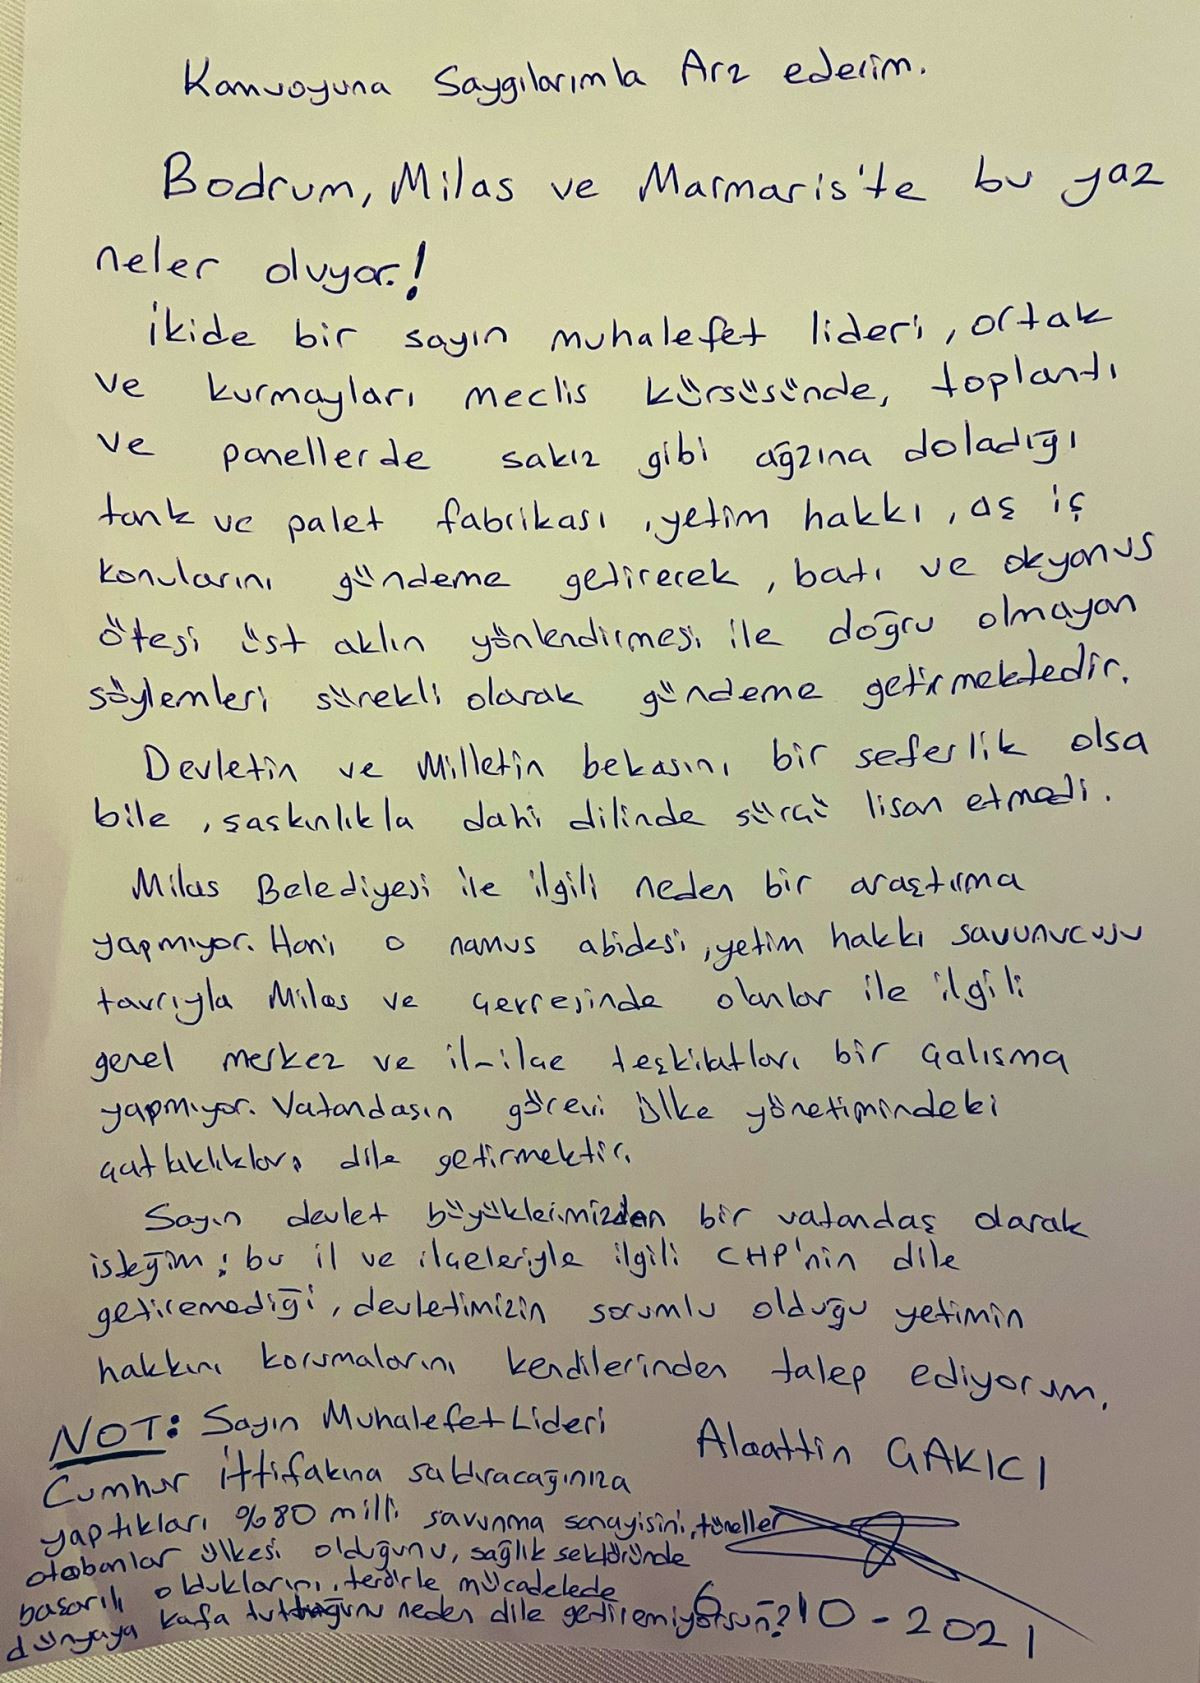 Kamuoyuna Saygılarımla Arz ederim.
Bodrum, Milas ve Marmaris'te bu yaz
neler oluyor.!
İkide bir sayın muhalefet lideri, ortak
ve kurmayları meclis kürsüsünde, toplantı
ve panellerde sakız gibi ağzına doladığı
tank ve palet fabrikası, yetim hakkı, aş iş
konularını gündeme getirecek, batı ve okyanus
ötesi üst aklın yönlendirmesi ile doğru olmayan
söylemleri sürekli olarak gündeme getirmektedir.
Devletin ve Milletin bekasını bir seferlik olsa
bile, şaşkınlıkla dahi dilinde sürçü lisan etmedi.
Milas Belediyesi ile ilgili neden bir araştırma
yapmıyor. Hani o namus abidesi, yetim hakkı savunucusu
tavrıyla Milas ve çevresinde olanlar ile ilgili
genel merkez ve il-ilçe teşkilatları bir çalışma
yapmıyor. Vatandaşın görevi ülke yönetimindeki
çatlaklıkları dile getirmektir.
Sayın devlet büyüklerimizden bir vatandaş olarak
isteğim; bu il ve ilçeleriyle ilgili CHP'nin dile
getiremediği, devletimizin sorumlu olduğu yetimin
hakkını korumalarını kendilerinden talep ediyorum.
Alaattin ÇAKICI
NOT: Sayın Muhalefet Lideri
Cumhur İttifakına saldıracağınıza
yaptıkları %80 milli savunma sanayisini, tüneller
otobanlar ülkesi olduğunu, sağlık sektöründe
başarılı olduklarını, terörle mücadelede
dünyaya kafa tuttuğunu neden dile getiremiyorsun?
6-10-2021